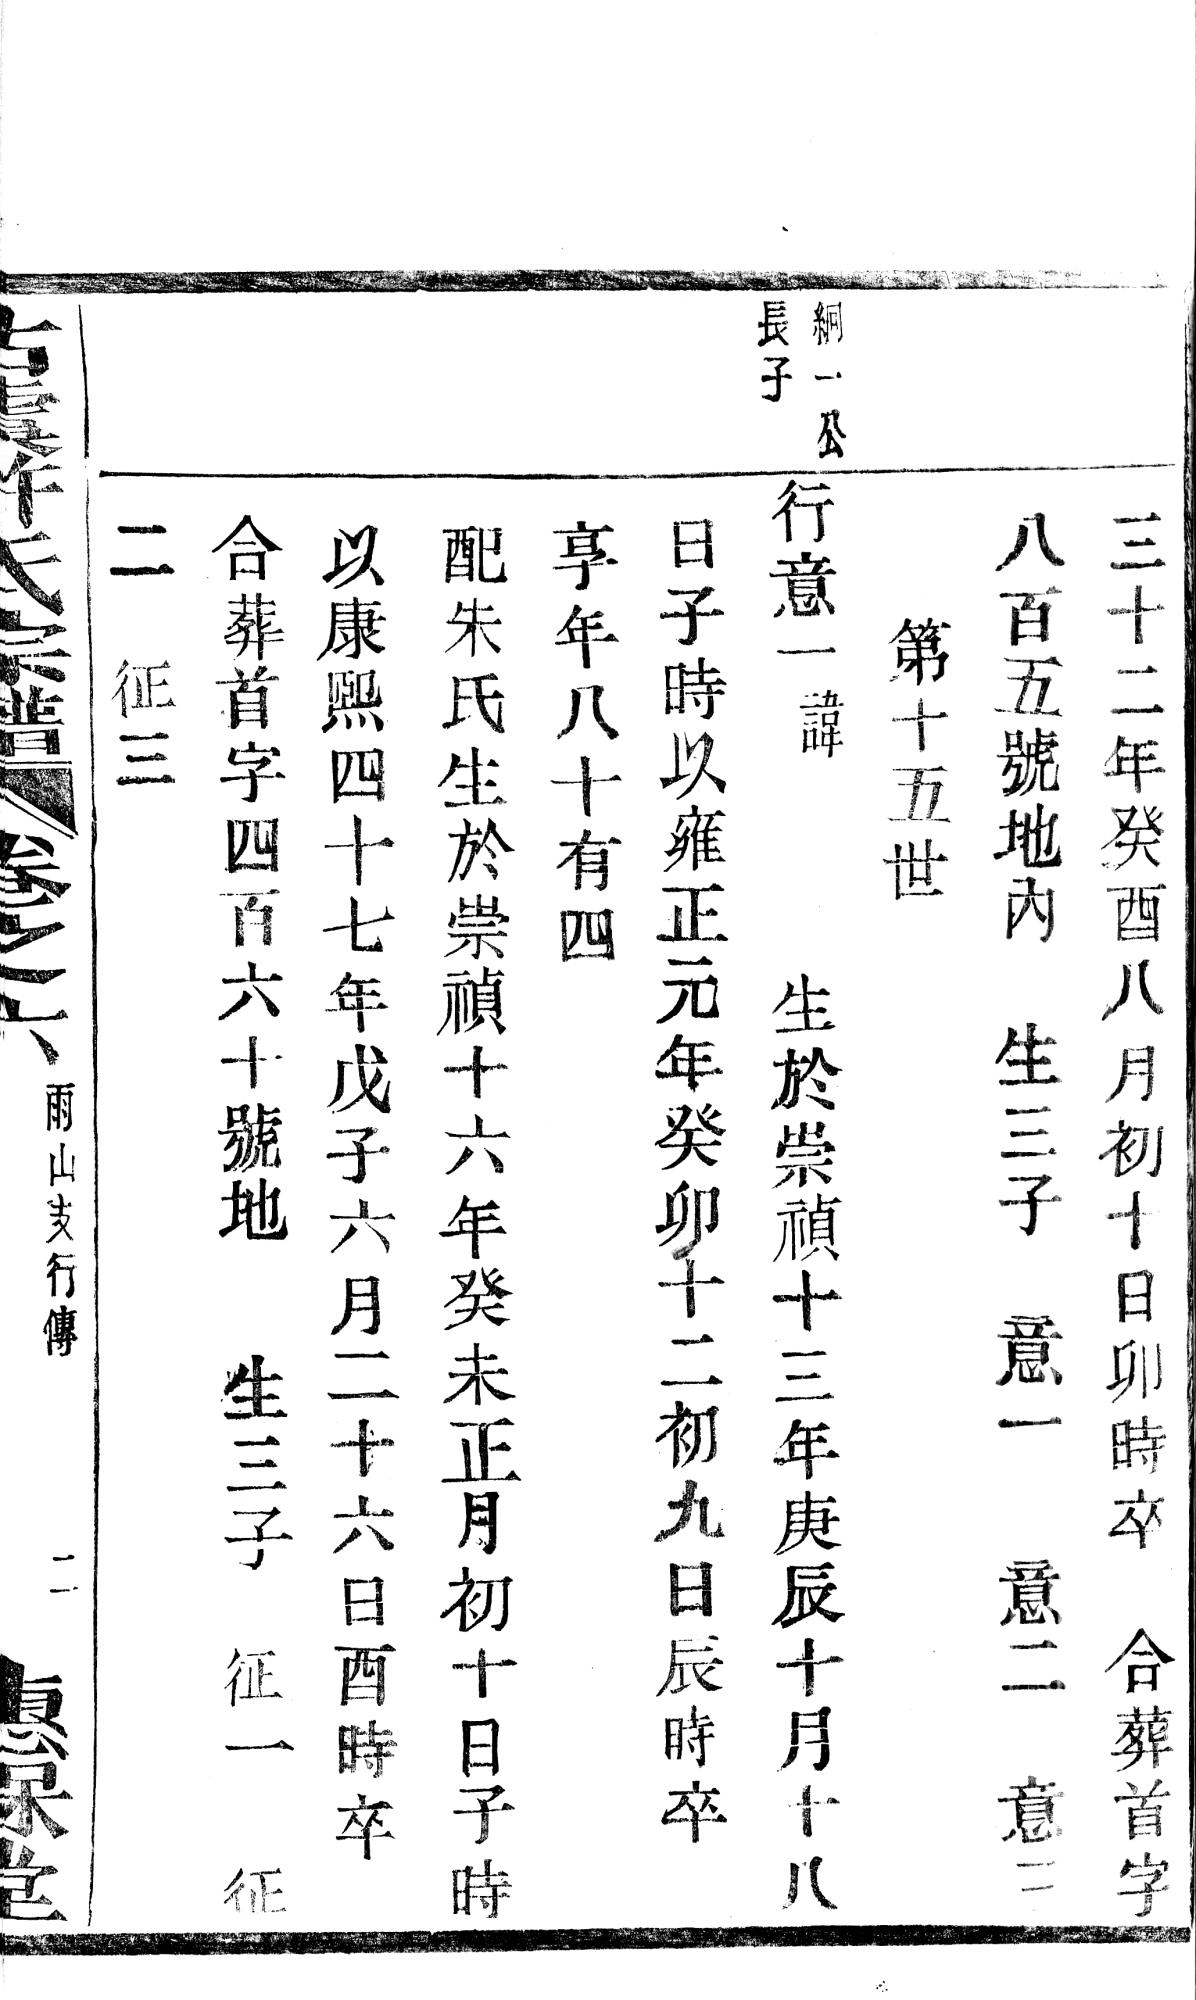 三十二年癸酉八月初十日卯時卒　合葬首字
八百五號地內　生三子　意一　意二　意三
第十五世
絅一公
長子
行意一諱　生於崇禎十三年庚辰十月十八
日子時以雍正元年癸卯十二初九日辰時卒
享年八十有四
配朱氏生於崇禎十六年癸未正月初十日子時
以康熙四十七年戊子六月二十六日酉時卒
合葬首字四百六十號地　生三子　征一　征
二　征三
氏宗譜　卷之六　雨山支行傳　二　堂